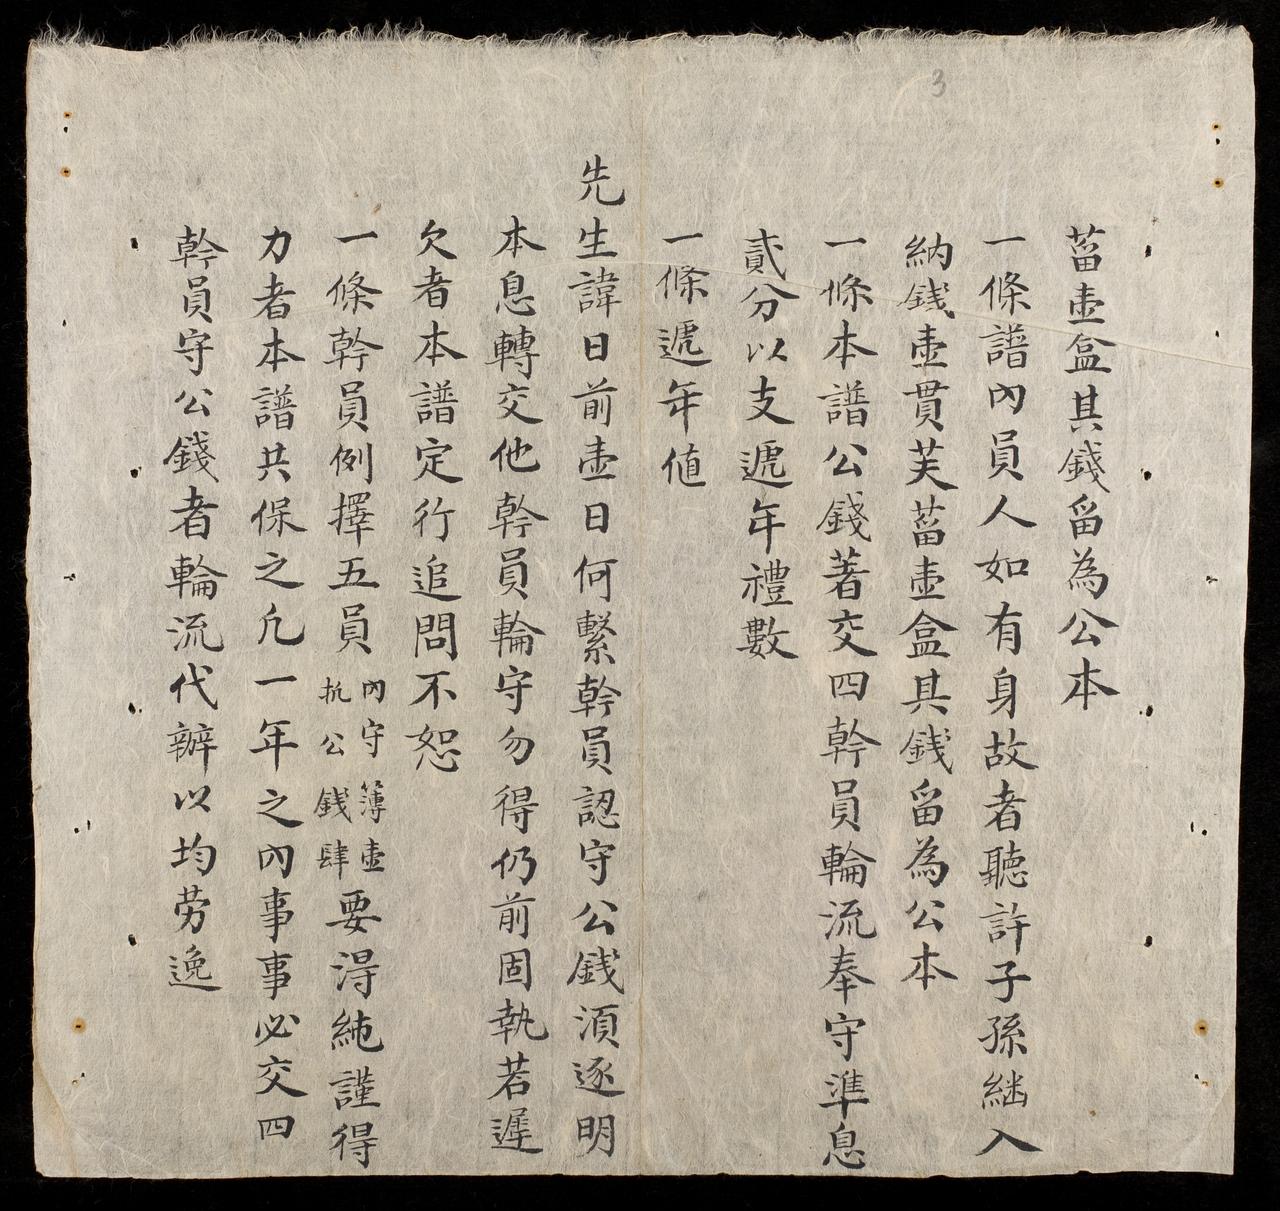 3
蒥壺盒其錢畱為公本
一條譜內員人如有身故者聽許子孫継入
納錢壺貫芙蒥壺盒具錢畱為公本
一條本譜公錢著交四幹員輪流奉守準息
貳分以支遞年禮數
一條遞年值
先生諱日前壺日何繫幹員認守公錢須逐明
本息轉交他幹員輪守勿得仍前固執若遲
欠者本譜定行追問不恕
一條幹員例擇五員內守簿壺执公錢肆要淂純謹得
力者本譜共保之凢一年之內事事必交四
幹員守公錢者輪流代辦以均劳逸